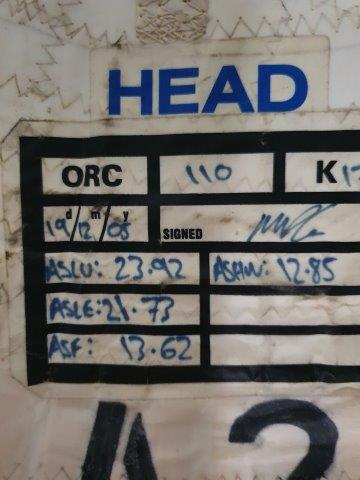 HEAD
ORC 110 K17
d m y
19/12/08 SIGNED
ASLU: 23.92 ASHW: 12.85
ASLE: 21.73
ASF: 13.62
A2